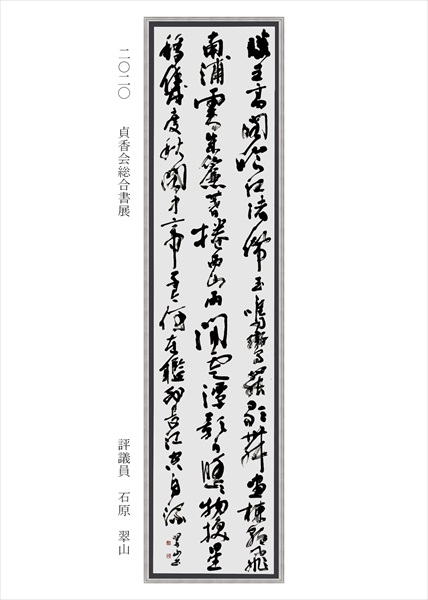 滕王高閣臨江渚佩玉鳴鸞罷歌舞画棟朝飛
南浦雲朱簾暮捲西山雨閑雲潭影日悠々物換星
移幾度秋閣中帝子今何在檻外長江空自流 翠山书
二〇二〇 貞香会総合書展
評議員 石原 翠山